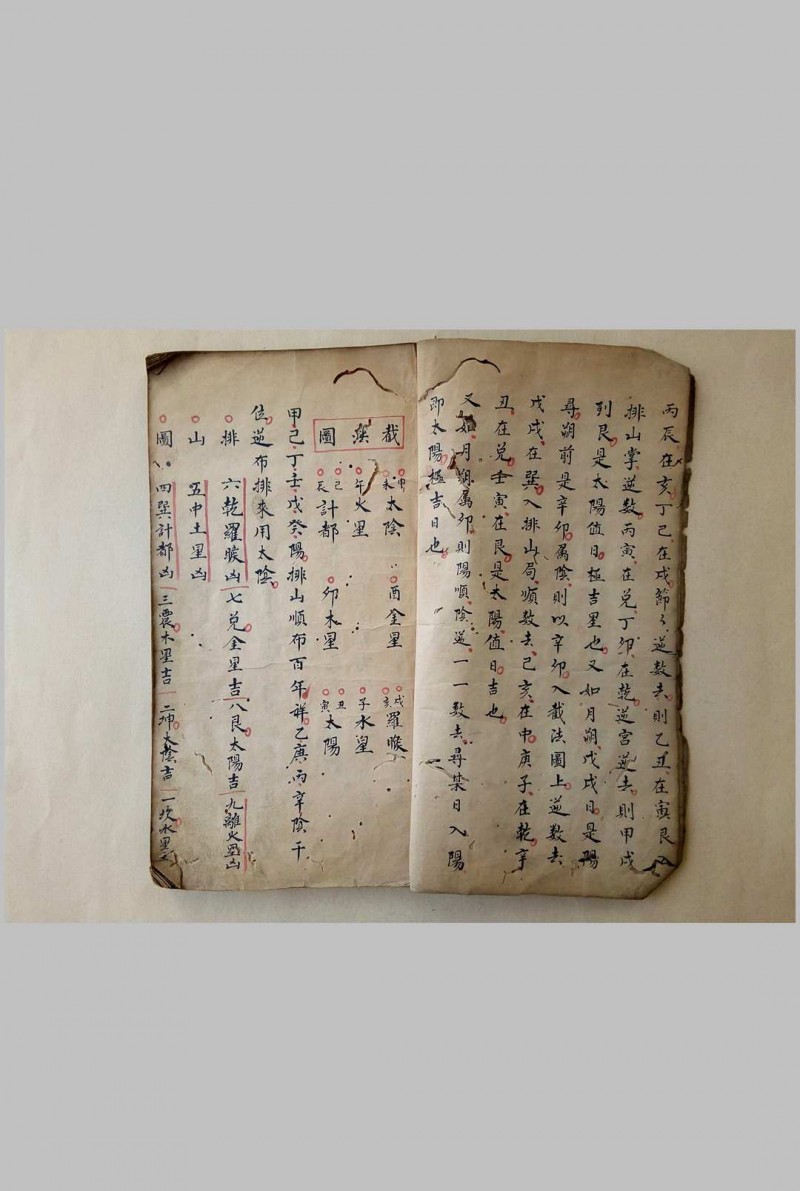 丙辰在亥丁巳在戌節々逆数去則乙丑在寅艮入
排山掌逆数丙寅在兑丁卯在乾逆宫逆去則甲戌
到艮是太陽值日極吉星也又如月朔戊戌日是陽
尋朔前是辛卯属陰則以辛卯入截法圖上逆数去
戊戌在巽入排山局順数去己亥在中庚子在乾辛
丑在兑壬寅在艮是太陽值日吉也
又如月朔属卯則陽順陰逆一一数去尋某日入陽
即太陽極吉日也
截 圖
申未太陰 酉金星 戌亥羅睺
午火星 子水星
巳辰計都 卯木星 丑寅太陽
甲己丁壬戊癸陽排山順布百年祥乙庚丙辛陰干
位逆布排來用太陰
排 六乾羅睺凶 七兑金星吉 八艮太陽吉 九離火星凶
山 五中土星凶
圖 四巽計都凶 三震木星吉 二坤太陰吉 一坎水星